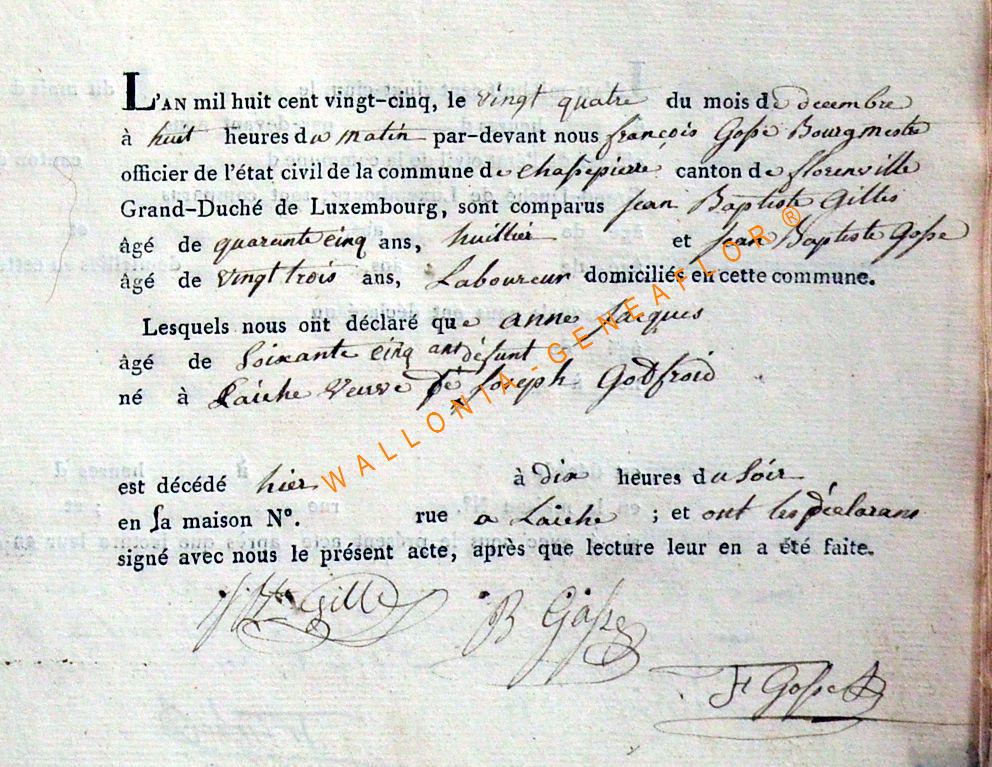 L'AN mil huit cent vingt-cinq, le vingt quatre du mois de decembre
à huit heures du matin par-devant nous françois Gosse Bourgmestre
officier de l'état civil de la commune de chassepierre canton de florenville
Grand-Duché de Luxembourg, sont comparus jean Baptiste Gillis
âgé de quarante cinq ans, huillier et jean Baptiste Gosse
âgé de vingt trois ans, Laboureur domiciliés en cette commune.
Lesquels nous ont déclaré que anne jacques
âgé de Soixante cinq ans défunt
né à Laiche veuve de joseph Godfroid
est décédé hier à dix heures du soir
en sa maison N°. rue a Laiche ; et ont les déclarans
signé avec nous le présent acte, après que lecture leur en a été faite.
Gille
B Gosse
F Gosse
WALLONIA-GENEAFLOR®